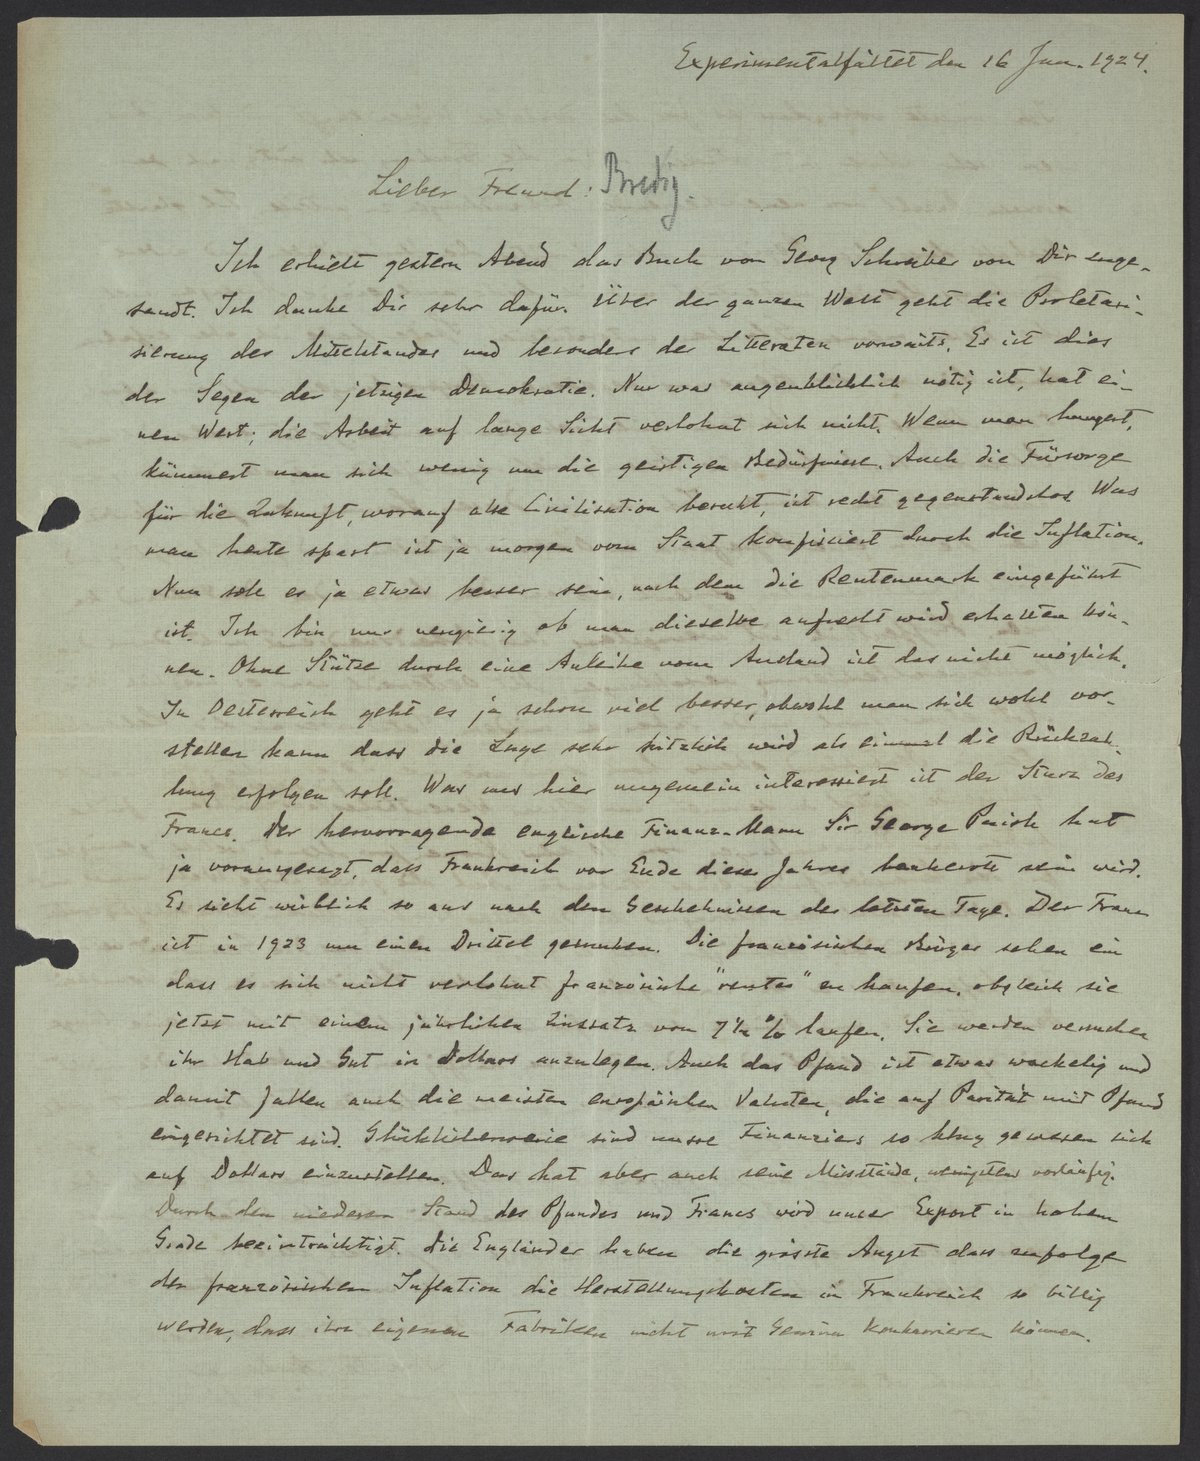 Experimentalfältet den 16 Jan. 1924.
Lieber Freund: Bredig.
Ich erhielt gestern Abend das Buch von Georg Schreiber von Dir enge-
sandt. Ich danke Dir sehr dafür. Über der ganzen Welt geht die Proletari-
sierung des Mittelstandes und besonders der Litteraten vorwärts. Es ist dies
der Segen der jetzigen Demokratie. Nur was augenblicklich nötig ist, hat ei-
nen Wert; die Arbeit auf lange Sicht verlohnt sich nicht. Wenn man hungert,
kümmert man sich wenig um die geistigen Bedürfnisse. Auch die Fürsorge
für die Zukunft, worauf alle Civilisation beruht, ist recht gegenstandslos. Was
man heute spart ist ja morgen vom Staat konfisciert durch die Inflation.
Nun soll es ja etwas besser sein, nach dem die Rentenmark eingeführt
ist. Ich bin nur neugierig ob man dieselbe aufrecht wird erhalten kön-
nen. Ohne Stütze durch eine Anleihe vom Ausland ist das nicht möglich.
In Oesterreich geht es ja schon viel besser, obwohl man sich wohl vor-
stellen kann dass die Lage sehr kitzlich wird als einmal die Rückzah-
lung erfolgen soll. Was uns hier ungemein interessiert ist der Sturz des
Francs. Der hervorragende englische Finanz-Mann Sir George Paish hat
ja vorausgesagt, dass Frankreich vor Ende dieses Jahres bankerott sein wird.
Es sieht wirklich so aus nach den Geschehnissen der letzten Tage. Der Franc
ist in 1923 um einen Drittel gesunken. Die französischen Bürger sehen ein
dass es sich nicht verlohnt französische "rentes" zu kaufen, obgleich sie
jetzt mit einem jährlichen Zinssatz von 7½ % laufen. Sie werden versuchen
ihr Hab und Gut in Dollars anzulegen. Auch das Pfund ist etwas wackelig und
damit fallen auch die meisten europäischen Valuten, die auf Parität mit Pfund
eingerichtet sind. Glücklicherweise sind unsre Finanziers so klug gewesen sich
auf Dollars einzustellen. Das hat aber auch seine Misstände, wenigstens vorläufig.
Durch den niederen Stand des Pfundes und Francs wird unser Export in hohem
Grade beeinträchtigt. Die Engländer haben die grösste Angst dass zufolge
der französischen Inflation die Herstellungskosten in Frankreich so billig
werden, dass ihre eigenen Fabriken nicht mit Gewinn konkurrieren können.